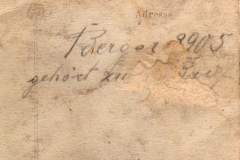 Adresse
Berger 2905
gehört zu